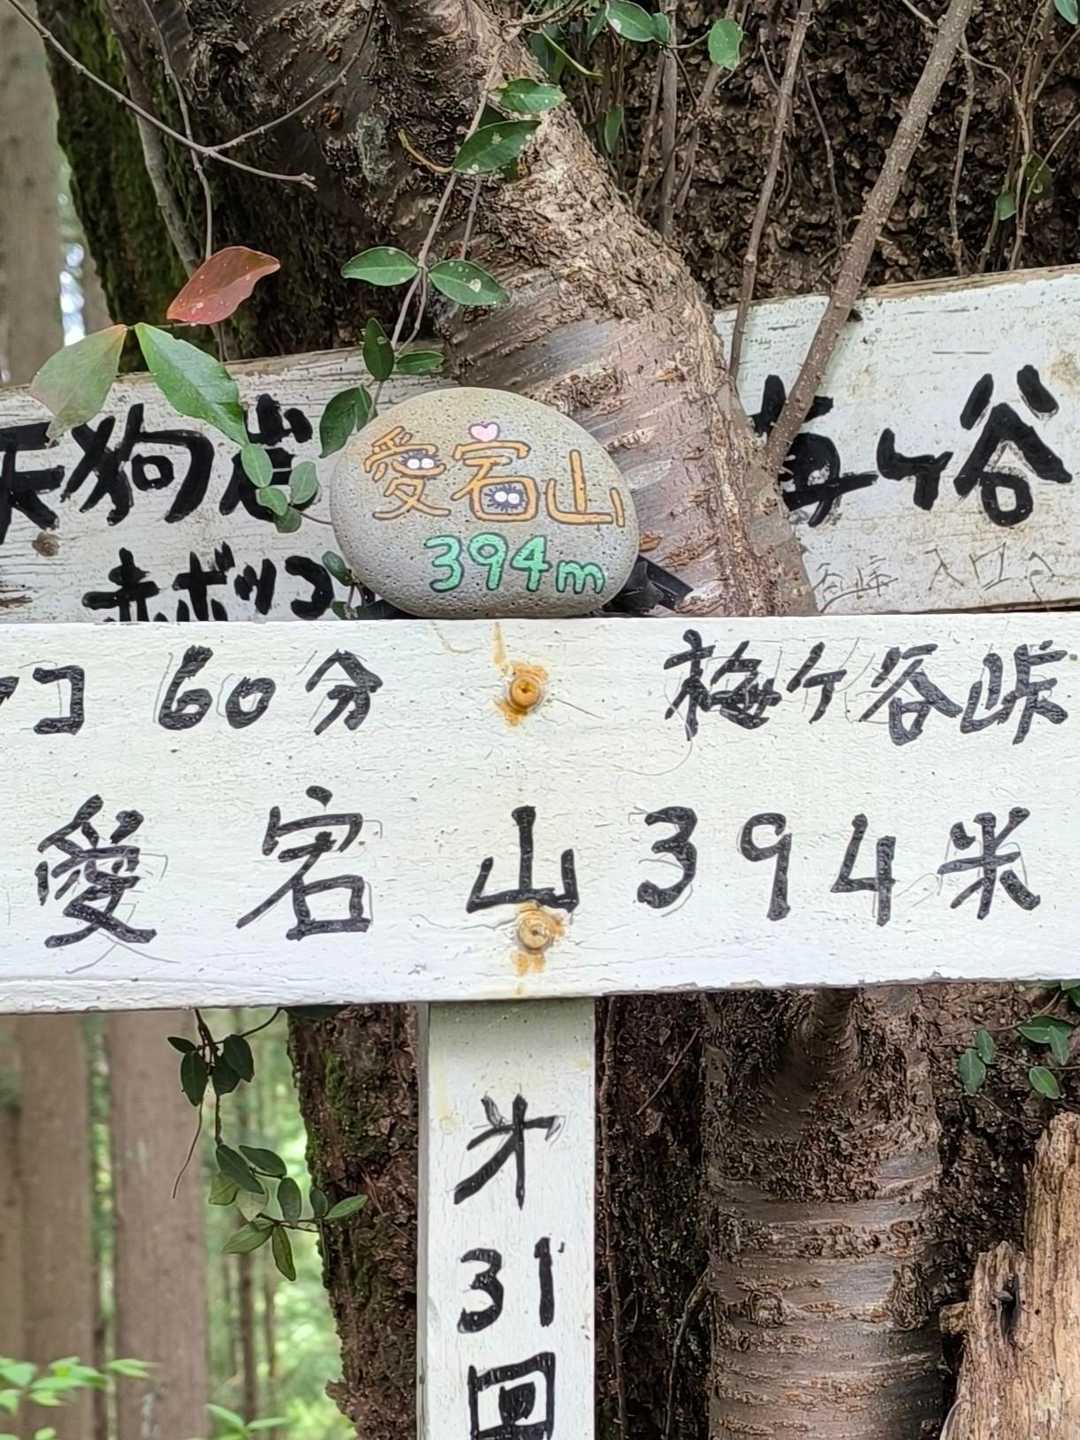 天狗岩
赤ボッコ
梅ヶ谷
愛宕山
394m
ッコ 60分
梅ヶ谷峠
愛宕山394米
才31回